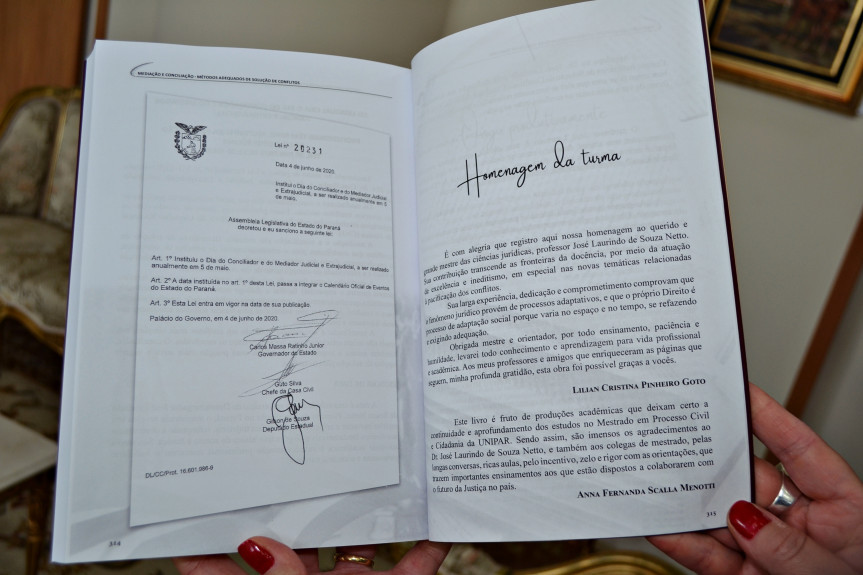 MEDIAÇÃO E CONCILIAÇÃO - MÉTODOS ADEQUADOS DE SOLUÇÃO DE CONFLITOS
Lei nº 20251
Data 4 de junho de 2020.
Institui o Dia do Conciliador e do Mediador Judicial
e Extrajudicial, a ser realizado anualmente em 5
de maio.
Assembleia Legislativa do Estado do Paraná
decretou e eu sanciono a seguinte lei:
Art. 1º Instituiu o Dia do Conciliador e do Mediador Judicial e Extrajudicial, a ser realizado
anualmente em 5 de maio.
Art. 2º A data instituída no art. 1º desta Lei, passa a integrar o Calendário Oficial de Eventos
do Estado do Paraná.
Art. 3º Esta Lei entra em vigor na data de sua publicação.
Palácio do Governo, em 4 de junho de 2020.
Carlos Massa Ratinho Junior
Governador do Estado
Guto Silva
Chefe da Casa Civil
Gilson de Souza
Deputado Estadual
DL/CC/Prot. 16.601.986-8
314
Homenagem da turma
É com alegria que registro aqui nossa homenagem ao querido e
grande mestre das ciências jurídicas, professor José Laurindo de Souza Netto.
Sua contribuição transcende as fronteiras da docência, por meio da atuação
de excelência e ineditismo, em especial nas novas temáticas relacionadas
à pacificação dos conflitos.
Sua larga experiência, dedicação e comprometimento comprovam que
o fenômeno jurídico provém de processos adaptativos, e que o próprio Direito é
processo de adaptação social porque varia no espaço e no tempo, se refazendo
e exigindo adequação.
Obrigada mestre e orientador, por todo ensinamento, paciência e
humildade, levarei todo conhecimento e aprendizagem para vida profissional
e acadêmica. Aos meus professores e amigos que enriqueceram as páginas que
seguem, minha profunda gratidão, esta obra foi possível graças a vocês.
LILIAN CRISTINA PINHEIRO GOTO
Este livro é fruto de produções acadêmicas que deixam certo a
continuidade e aprofundamento dos estudos no Mestrado em Processo Civil
e Cidadania da UNIPAR. Sendo assim, são imensos os agradecimentos ao
Dr. José Laurindo de Souza Netto, e também aos colegas de mestrado, pelas
longas conversas, ricas aulas, pelo incentivo, zelo e rigor com as orientações, que
trazem importantes ensinamentos aos que estão dispostos a colaborarem com
o futuro da Justiça no país.
ANNA FERNANDA SCALLA MENOTTI
315